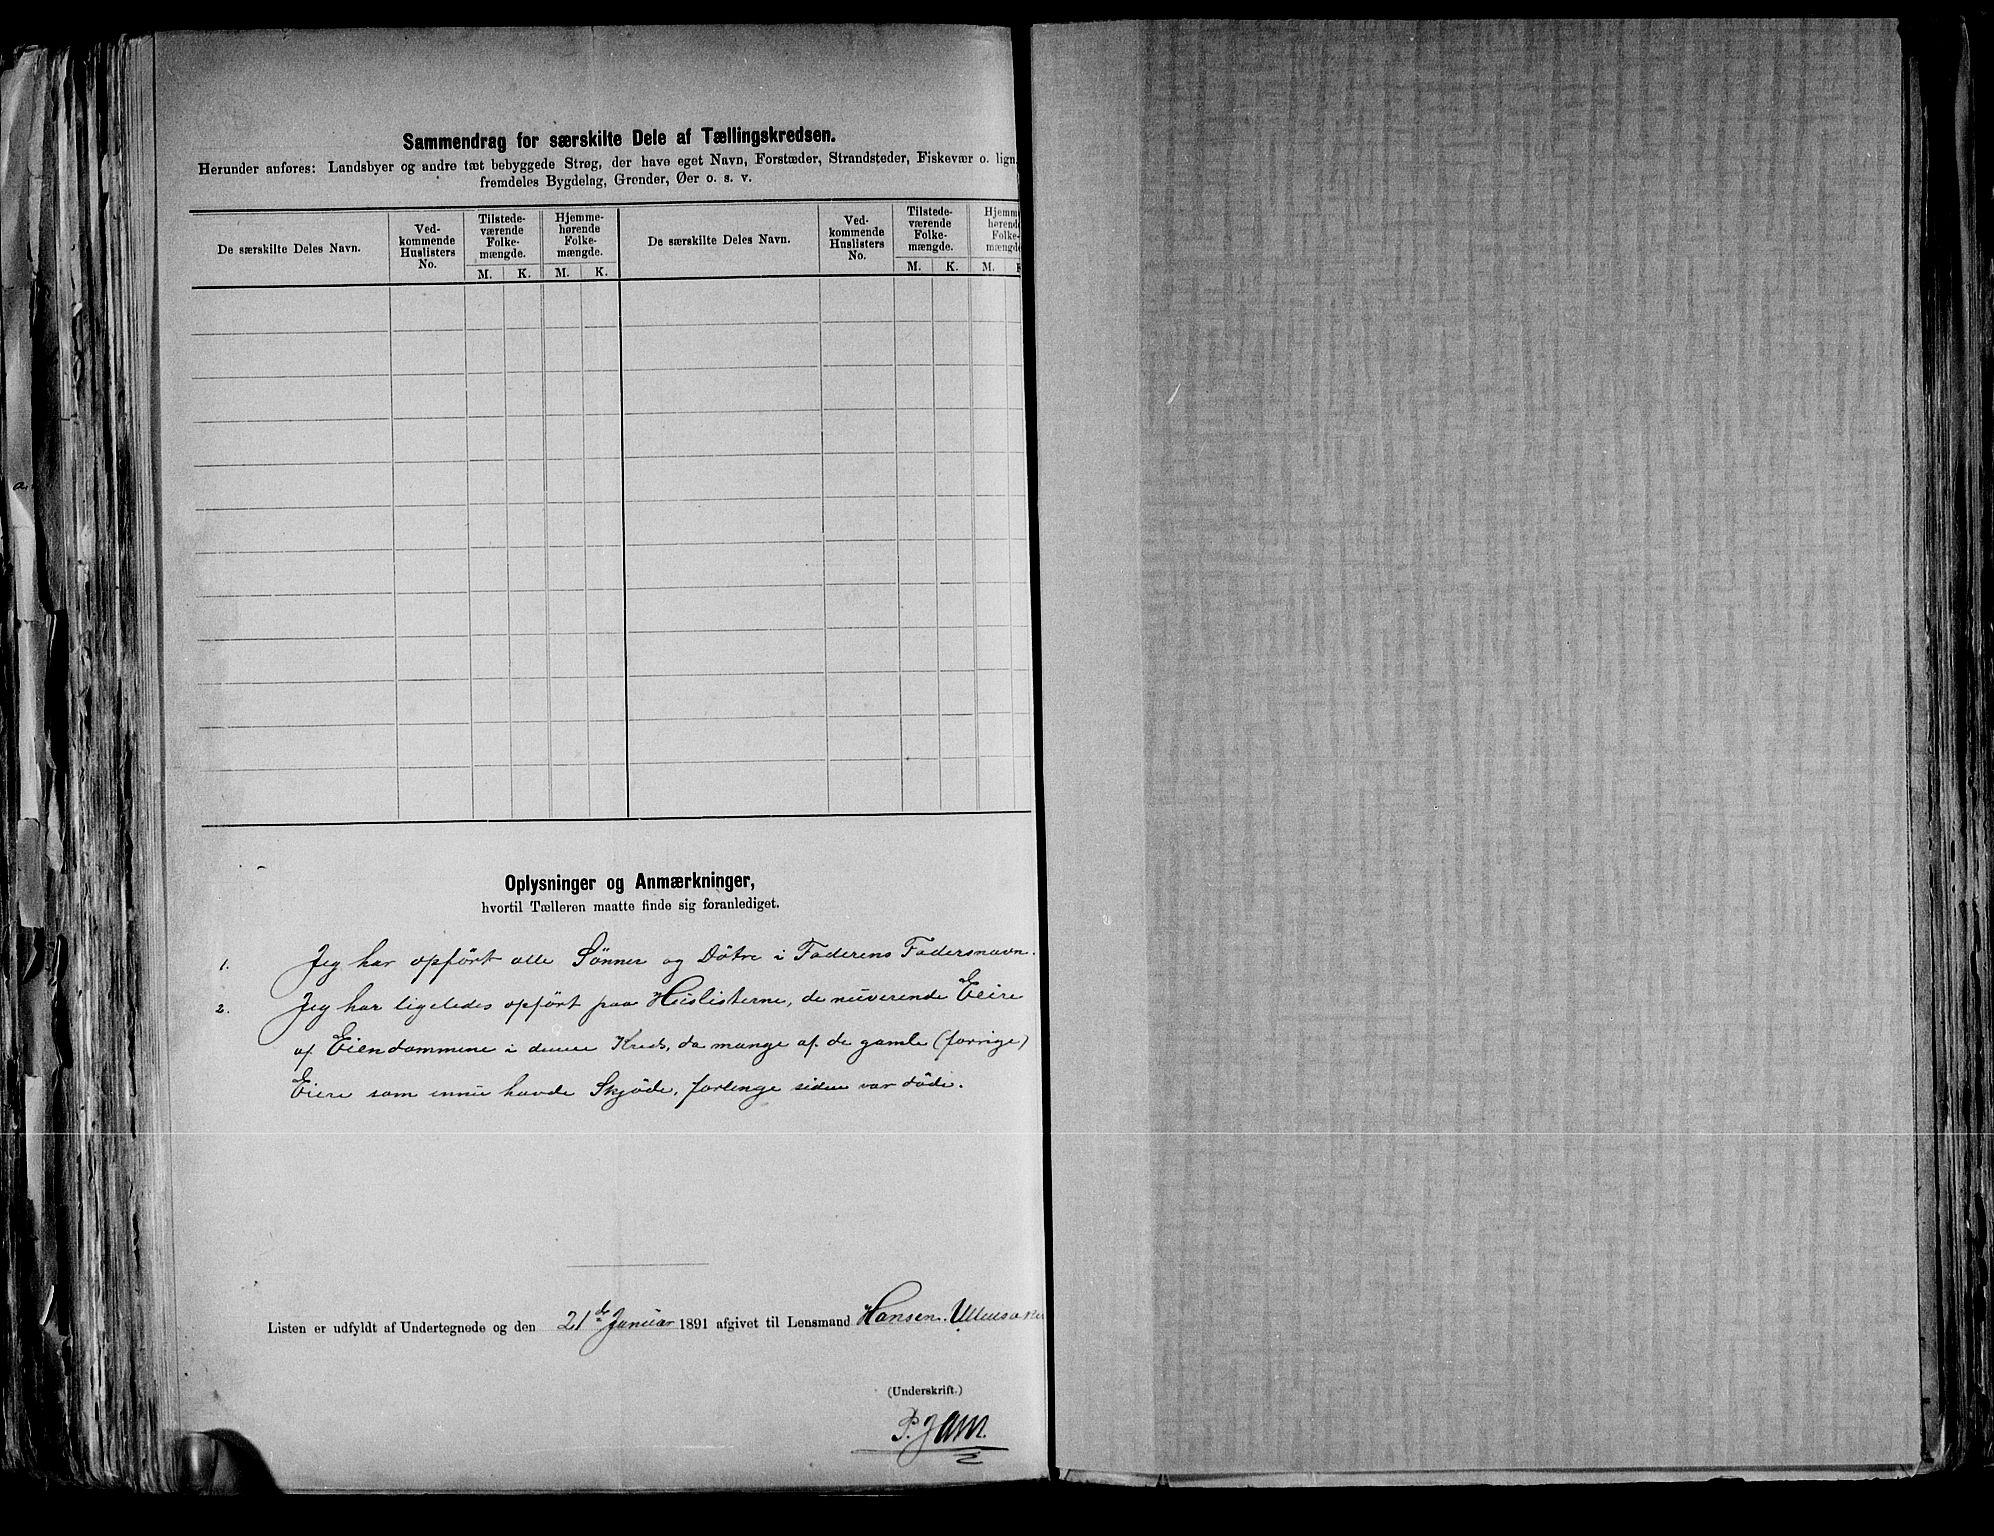 Sammendrag for særskilte Dele af Tællingskredsen.
Herunder anføres: Landsbyer og andre tæt bebyggede Strøg, der have eget Navn, Forstæder, Strandsteder, Fiskevær o. lign.
fremdeles Bygdelag, Grender, Øer o. s. v.
De særskilte Deles Navn.
Ved-
kommende
Huslisters
No.
Tilstede-
værende
Folke-
mængde.
M. K.
Hjemme-
hørende
Folke-
mængde.
M. K.
De særskilte Deles Navn.
Ved-
kommende
Huslisters
No.
Tilstede-
værende
Folke-
mængde.
M. K.
Hjemme
hørende
Folke-
mængde
M. K
Oplysninger og Anmærkninger,
hvortil Tælleren maatte finde sig foranlediget.
1. Jeg har opført alle Sønner og Døtre i Faderens Fadersnavn.
2. Jeg har ligeledes opført paa Huslisterne, de nuverende Eiere
af Eiendommene i denne Kreds, da mange af de gamle (forrige)
Eiere som ennu havde Skjøde, forlenge siden var døde.
Listen er udfyldt af Undertegnede og den 21de Januar 1891 afgivet til Lensmand Hansen. Ullensaker
(Underskrift.)